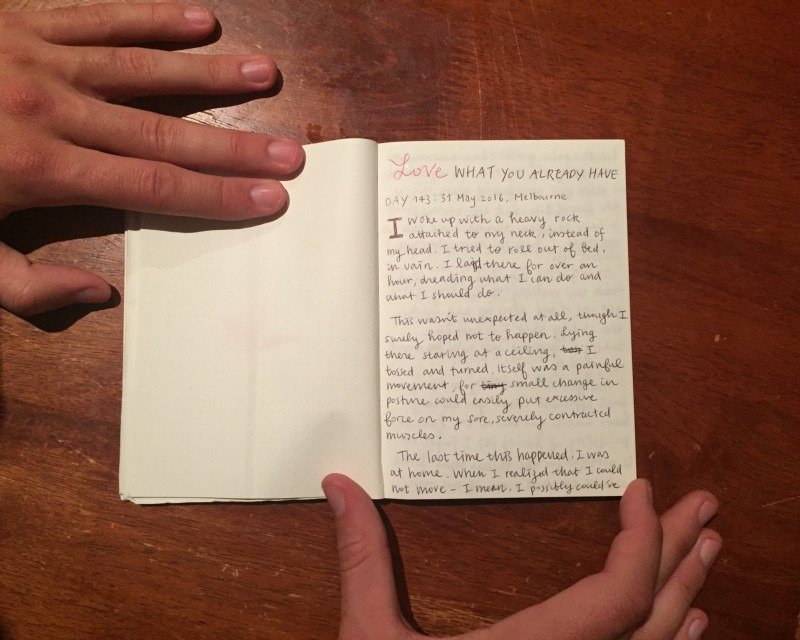 Love WHAT YOU ALREADY HAVE
DAY 143: 31 May 2016, Melbourne
I woke up with a heavy rock
attached to my neck, instead of
my head. I tried to roll out of bed,
in vain. I laid there for over an
hour, dreading what I can do and
what I should do.
This wasn't unexpected at all, though I
surely hoped not to happen. Lying
there staring at a ceiling, I
tossed and turned, itself was a painful
movement, for tiny small change in
posture could easily put excessive
force on my sore, severely contracted
muscles.
The last time this happened, I was
at home. When I realized that I could
not move – I mean, I possibly could've